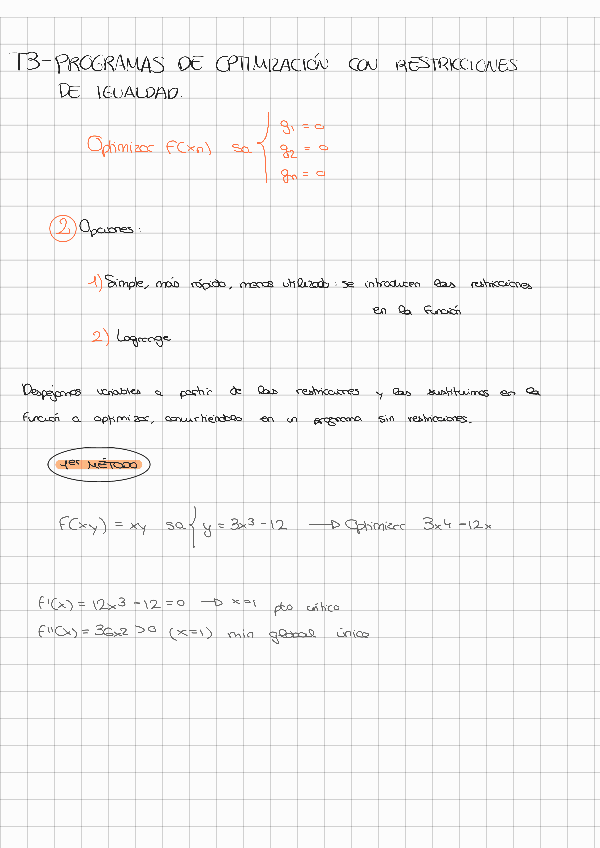 T3-PROGRAMAS DE OPTIMIZACIÓN CON RESTRICCIONES
DE IGUALDAD.
Optimizar f(xn) sa { g1 = 0
g2 = 0
gn = 0
2 Opciones:
1) Simple, más rápido, menos utilizado: se introducen las restricciones
en la función
2) Lagrange
Despejamos variables a partir de las restricciones y las sustituimos en la
función a optimizar, convirtiéndolo en un programa sin restricciones.
1er MÉTODO
f(xy) = xy sa { y = 3x3-12 → Optimizar 3x4-12x
f'(x) = 12x3-12=0 → x=1 pto crítico
f''(x) = 36x2 >0 (x=1) min global único